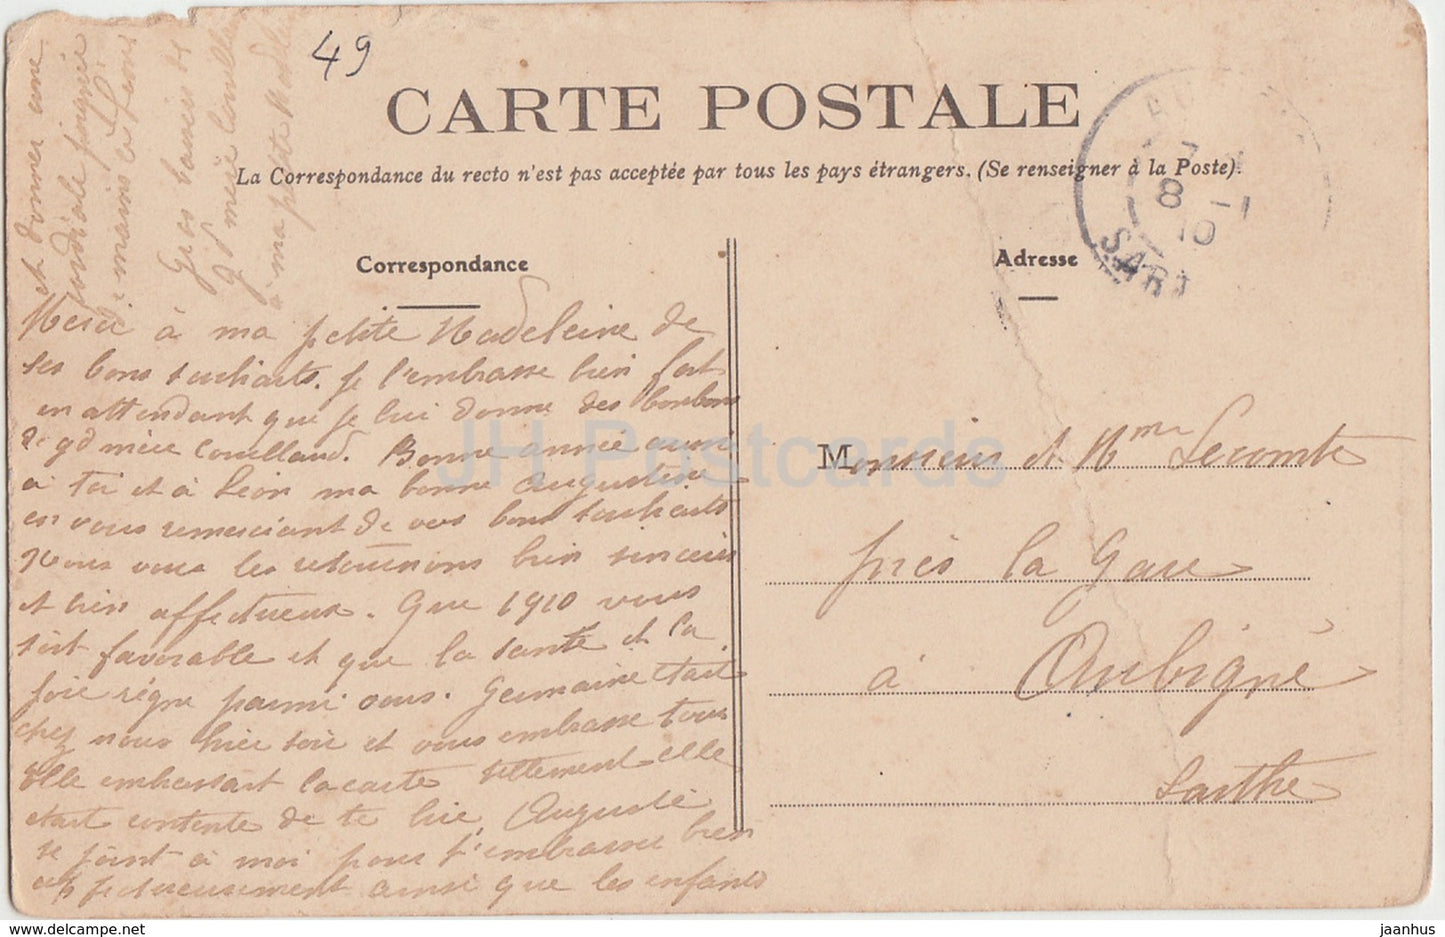 49
CARTE POSTALE
La Correspondance du recto n'est pas acceptée par tous les pays étrangers. (Se renseigner à la Poste).
8 -1
10
SART
Correspondance
Adresse
Merci à ma petite Madeleine de
ses bons souhaits. Je l'embrasse bien fort
en attendant que je lui donne des bonbons
de gd mère Couilland. Bonne année aussi
à toi et à Léon ma bonne Augustine
en vous remerciant de vos bons souhaits
Nous vous les retournons bien sincères
et bien affectueux. Que 1910 vous
soit favorable et que la santé et la
joie règne parmi vous. Germaine était
chez nous hier soir et vous embrasse tous
Elle embrassait la carte tellement elle
était contente de te lire, Auguste
se joint à moi pour t'embrasser bien
affectueusement ainsi que les enfants
et donner une
cordiale poignée
de mains à
Gros baisers de
gd mère Couilland
à ma petite Madeleine
Monsieur et Mme Lecomte
près la Gare
à Aubigné
Sarthe
JH Postcards
delcampe.net
jaanhus